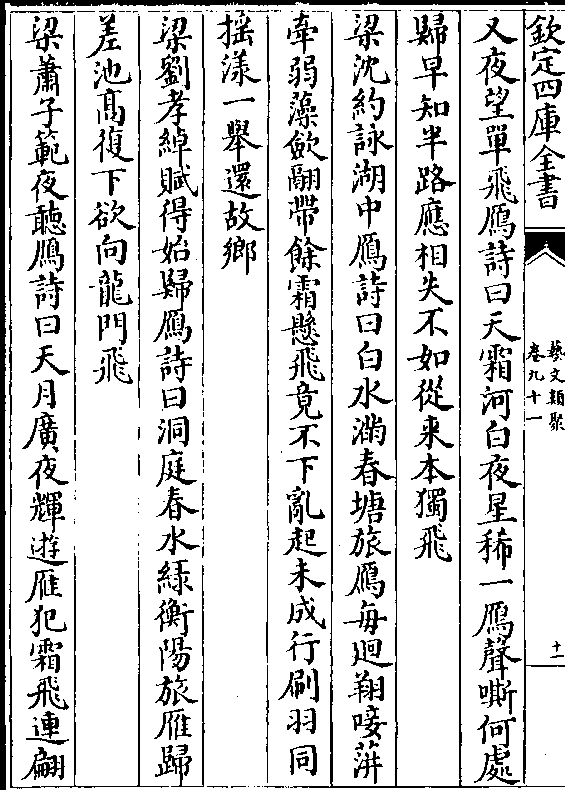 欽定四庫全書
藝文類聚
卷九十一
十一
又夜望單飛鴈詩曰天霜河白夜星稀一鴈聲嘶何處
歸早知半路應相失不如從來本獨飛
梁沈約詠湖中鴈詩曰白水滿春塘旅鴈每迴翔唼蓱
牽弱藻斂翮帶餘霜懸飛竟不下亂起未成行刷羽同
揺漾一舉還故鄉
梁劉孝綽賦得始歸鴈詩曰洞庭春水緑衡陽旅雁歸
差池髙復下欲向龍門飛
梁蕭子範夜聽鴈詩曰天月廣夜輝遊雁犯霜飛連翩